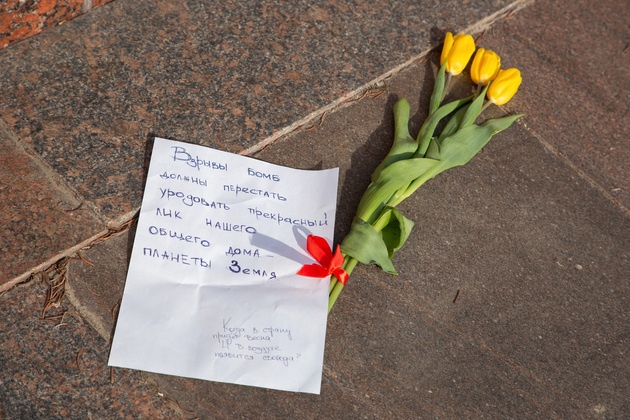 Взрывы бомб
должны перестать
уродовать прекрасный
лик нашего
общего дома –
планеты Земля
Когда в страну
придёт весна
И в воздухе
появится свобода?